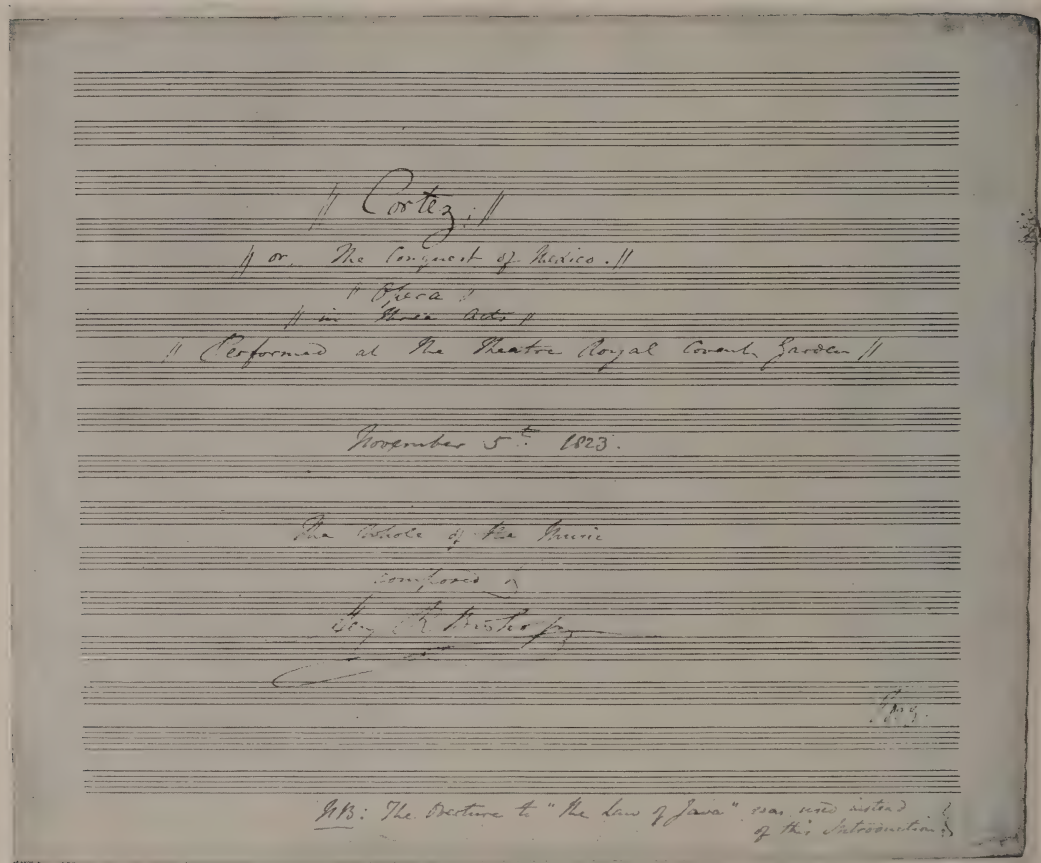 // Cortez; //
// or, The Conquest of Mexico. //
" Opera "
// in Three Acts //
// Performed at the Theatre Royal Covent Garden //
November 5th. 1823.
The Whole of the Music
composed by
Henry R Bishop
NB: The Overture to "The Law of Java" was used instead
of this Introduction.